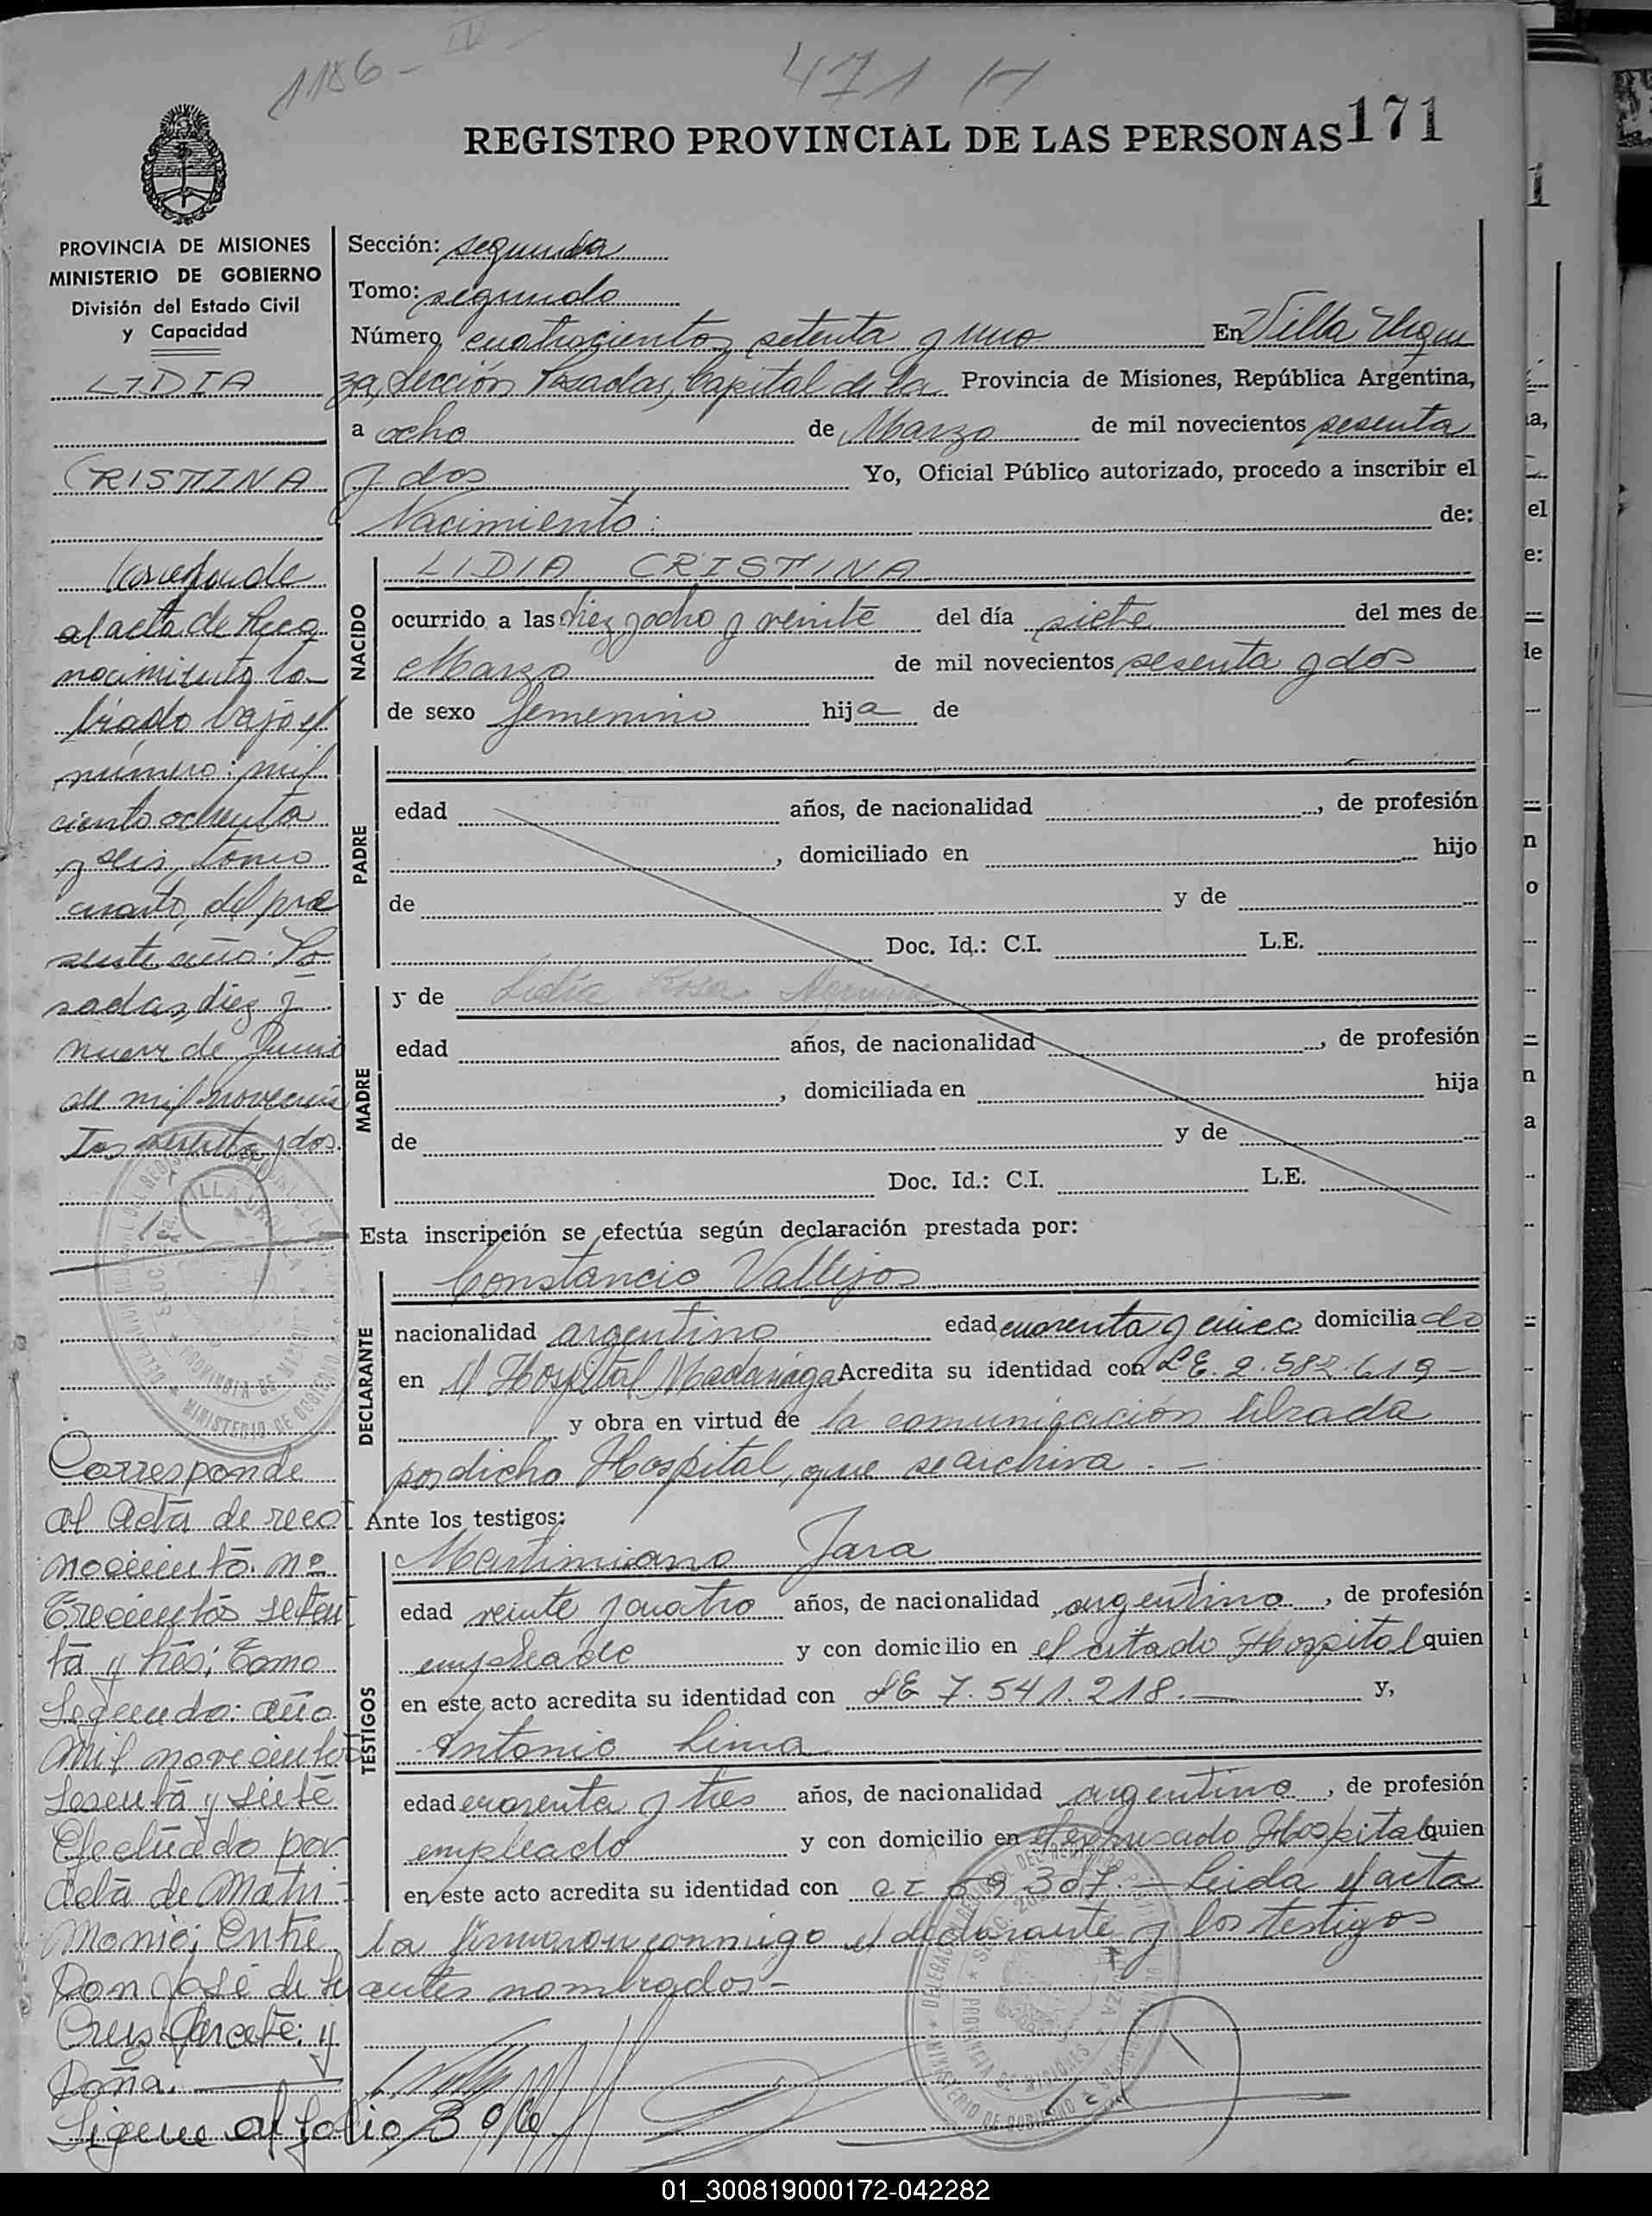 1186 - IV -
471 H
REGISTRO PROVINCIAL DE LAS PERSONAS 171
PROVINCIA DE MISIONES
MINISTERIO DE GOBIERNO
División del Estado Civil
y Capacidad
LIDIA
CRISTINA
Corresponde
al acta de Reco
nocimiento la-
brado bajo el
número: mil
ciento ochenta
y seis, tomo
cuarto, del pre
sente año. Po
sadas, diez y
nueve de Junio
de mil novecien
tos sesenta y dos.
Corresponde
al Acta de reco
nocimiento. nº
Trecientos seten
ta y tres; Tomo
Segundo: año
Mil novecientos
Sesenta y siete
Efectuado por
Acta de Matri-
monio; Entre
Don José de la
Cruz Garcete: y
Doña.
Sigue al folio 3
Sección: segunda
Tomo: segundo
Número cuatrocientos setenta y uno En Villa Urqui
za, Sección Posadas, Capital de la Provincia de Misiones, República Argentina,
a ocho de Marzo de mil novecientos sesenta
y dos Yo, Oficial Público autorizado, procedo a inscribir el
Nacimiento: de:
NACIDO
LIDIA CRISTINA
ocurrido a las diez y ocho y veinte del día siete del mes de
Marzo de mil novecientos sesenta y dos
de sexo femenino hija de
PADRE
edad años, de nacionalidad , de profesión
, domiciliado en hijo
de y de
Doc. Id.: C.I. L.E.
MADRE
y de Lidia Rosa
edad años, de nacionalidad , de profesión
, domiciliada en hija
de y de
Doc. Id.: C.I. L.E.
Esta inscripción se efectúa según declaración prestada por:
DECLARANTE
Constancio Vallejos
nacionalidad argentino edad cuarenta y cinco domiciliado
en el Hospital Madariaga Acredita su identidad con L.E. 2.582.619 -
y obra en virtud de la comunicación librada
por dicho Hospital, que se archiva. -
Ante los testigos:
TESTIGOS
Martimiano Jara
edad veinte y cuatro años, de nacionalidad argentino , de profesión
empleado y con domicilio en el citado Hospital quien
en este acto acredita su identidad con LE 7.541.218.- y,
Antonio Lima
edad cuarenta y tres años, de nacionalidad argentino , de profesión
empleado y con domicilio en el expresado Hospital quien
en este acto acredita su identidad con CI 59 307. - Leida el acta
la firmaron conmigo el declarante y los testigos
antes nombrados -
01_300819000172-042282